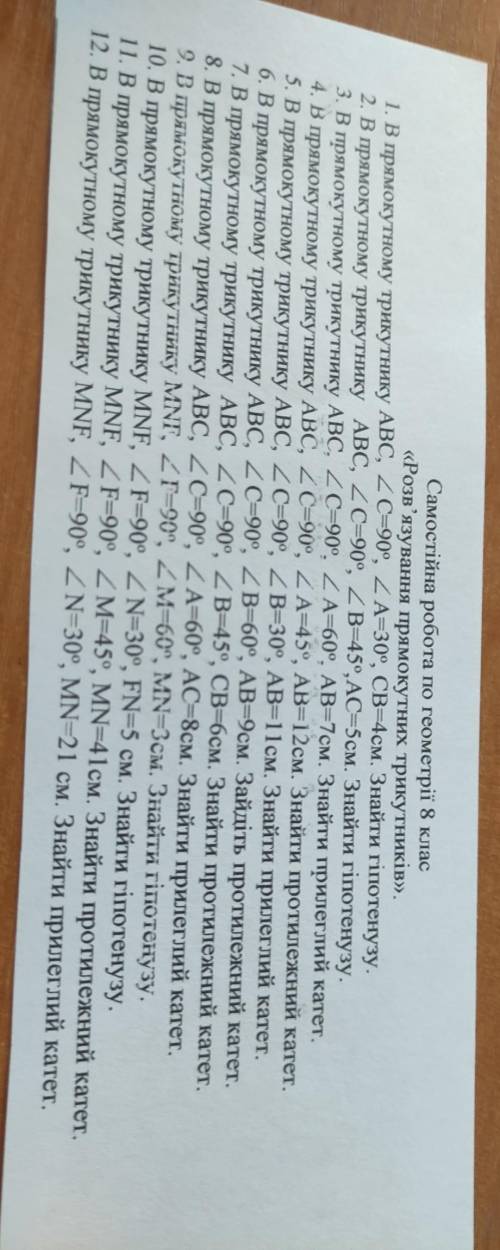 Самостійна робота по геометрії 8 клас
«Розв'язування прямокутних трикутників».
1. В прямокутному трикутнику АВС, ∠C=90°, ∠A=30°, СВ=4см. Знайти гіпотенузу.
2. В прямокутному трикутнику АВС, ∠C=90°, ∠B=45°,АС=5см. Знайти гіпотенузу.
3. В прямокутному трикутнику АВС, ∠C=90°, ∠A=60°, АВ=7см. Знайти прилеглий катет.
4. В прямокутному трикутнику АВС, ∠C=90°, ∠A=45°, АВ=12см. Знайти протилежний катет.
5. В прямокутному трикутнику АВС, ∠C=90°, ∠B=30°, АВ=11см. Знайти прилеглий катет.
6. В прямокутному трикутнику АВС, ∠C=90°, ∠B=60°, АВ=9см. Зайдіть протилежний катет.
7. В прямокутному трикутнику АВС, ∠C=90°, ∠B=45°, СВ=6см. Знайти протилежний катет.
8. В прямокутному трикутнику АВС, ∠C=90°, ∠A=60°, АС=8см. Знайти прилеглий катет.
9. В прямокутному трикутнику MNF, ∠F=90°, ∠M=60°, MN=3см. Знайти гіпотенузу.
10. В прямокутному трикутнику MNF, ∠F=90°, ∠N=30°, FN=5 см. Знайти гіпотенузу.
11. В прямокутному трикутнику MNF, ∠F=90°, ∠M=45°, MN=41см. Знайти протилежний катет.
12. В прямокутному трикутнику MNF, ∠F=90°, ∠N=30°, MN=21 см. Знайти прилеглий катет.